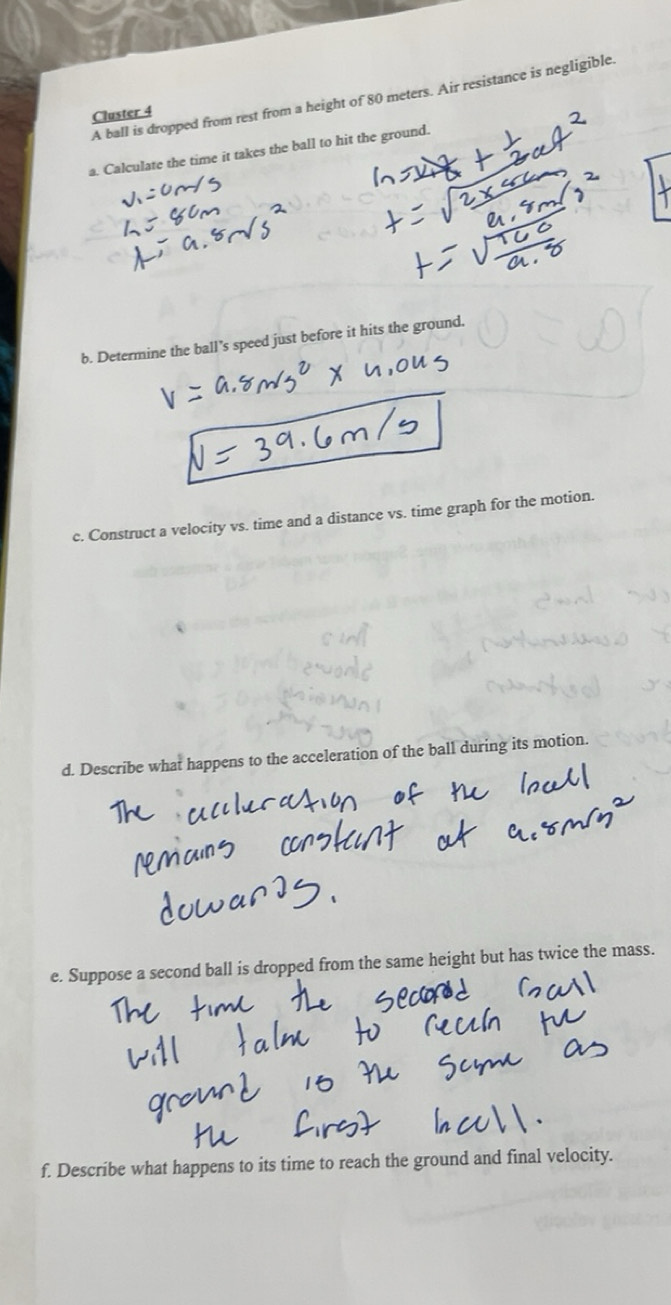 Cluster 4
A ball is dropped from rest from a height of 80 meters. Air resistance is negligible.
a. Calculate the time it takes the ball to hit the ground.
v₁=0m/s
h=80m
A=9.8m/s²
h=v₁t + ½at²
t=√2×80m/9.8m/s²
t=√160/9.8
t
b. Determine the ball's speed just before it hits the ground.
V=9.8m/s² × 4.04s
V=39.6m/s
c. Construct a velocity vs. time and a distance vs. time graph for the motion.
d. Describe what happens to the acceleration of the ball during its motion.
The accleration of the ball
remains constant at 9.8m/s²
dowards.
e. Suppose a second ball is dropped from the same height but has twice the mass.
The time the second ball
will take to reach the
ground is the same as
the first ball.
f. Describe what happens to its time to reach the ground and final velocity.